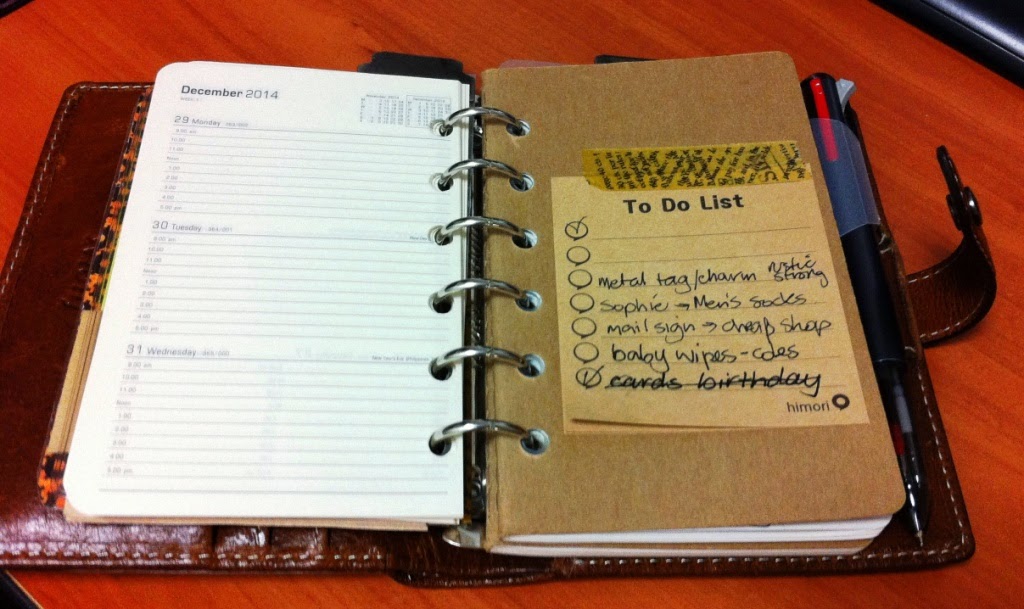 December 2014
29 Monday
9.00 am
10.00
11.00
Noon
1.00
2.00
3.00
4.00
5.00 pm
30 Tuesday
9.00 am
10.00
11.00
Noon
1.00
2.00
3.00
4.00
5.00 pm
31 Wednesday
9.00 am
10.00
11.00
Noon
1.00
2.00
3.00
4.00
5.00 pm
To Do List
metal tag/charm rustic strong
sophie → Men's socks
mail sign → cheap shop
baby wipes - coles
cards birthday
himori